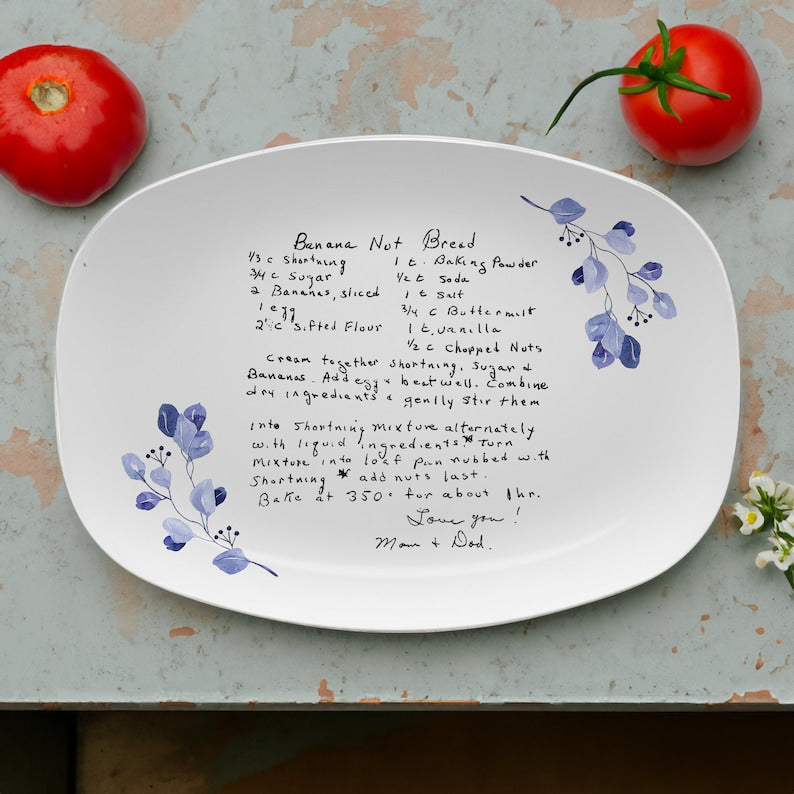 Banana Nut Bread
1/3 c Shortning
3/4 c Sugar
2 Bananas, sliced
1 egg
2 c Sifted Flour
1 t. Baking Powder
1/2 t Soda
1 t Salt
3/4 c Buttermilt
1 t. vanilla
1/2 c Chopped Nuts
Cream together shortning, sugar &
Bananas. Add egg & beat well. Combine
dry ingredients & gently stir them
into Shortning mixture alternately
with liquid ingredients.* Turn
mixture into loaf pan rubbed with
Shortning * add nuts last.
Bake at 350° for about 1 hr.
Love you!
Mom & Dad.